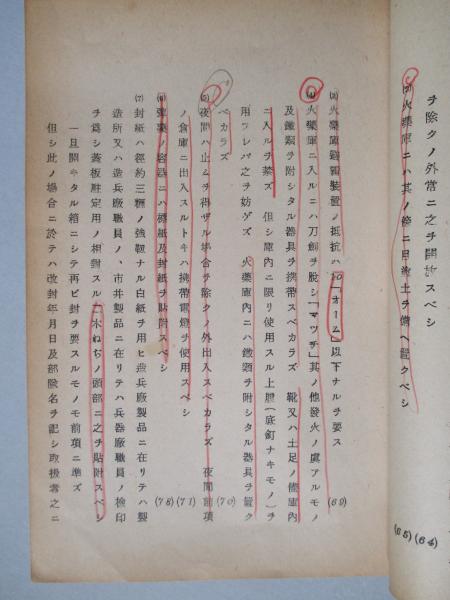 ヲ除クノ外常ニ之ヲ開放スベシ
火藥庫ニハ其ノ傍ニ目塗土ヲ備ヘ置クベシ
(64)
(65)
(3) 火藥庫避雷裝置ノ抵抗ハ10「オーム」以下ナルヲ要ス
(69)
(4) 火藥庫ニ入ルニハ刀劍ヲ脫シ「マツチ」其ノ他發火ノ虞アルモノ
及鐵類ヲ附シタル器具ヲ携帶スベカラズ 靴又ハ土足ノ儘庫內
ニ入ルヲ禁ズ 但シ庫內ニ限リ使用スル上履(底釘ナキモノ)ヲ
用フレバ之ヲ妨ゲズ 火藥庫內ニハ鐵類ヲ附シタル器具ヲ置ク
ベカラズ
(70)
(5) 夜間ハ止ムヲ得ザル場合ヲ除クノ外出入スベカラズ 夜間前項
ノ倉庫ニ出入スルトキハ携帶電燈ヲ使用スベシ
(71)
(6) 彈藥ノ容器ニハ標紙及封紙ヲ貼附スベシ
(78)
(7) 封紙ハ徑約三糎ノ強靱ナル白紙ヲ用ヒ造兵廠製品ニ在リテハ製
造所又ハ造兵廠職員ノ、市井製品ニ在リテハ兵器廠職員ノ檢印
ヲ爲シ蓋板駐定用ノ相對スル二木ねぢノ頭部ニ之ヲ貼附スベシ
一旦開キタル箱ニシテ再ビ封ヲ要スルモノモ前項ニ準ズ
但シ此ノ場合ニ於テハ改封年月日及部隊名ヲ記シ取扱者之ニ